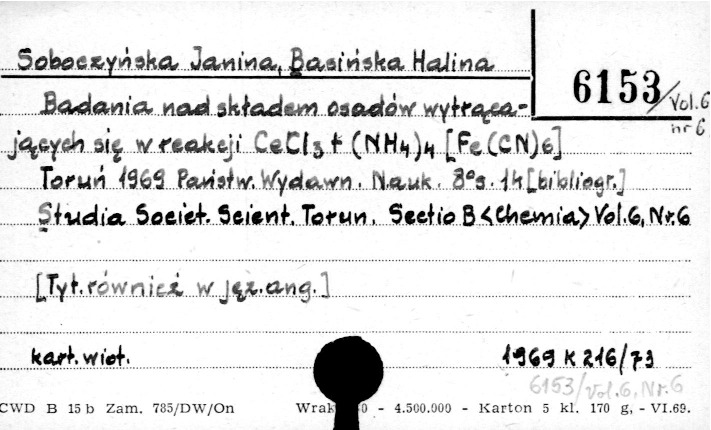 Soboczyńska Janina, Basińska Halina
6153/Vol.6
nr 6
Badania nad składem osadów wytrąca-
jących się w reakcji CeCl3 + (NH4)4 [Fe(CN)6]
Toruń 1969 Państw. Wydawn. Nauk. 8° s. 14 [bibliogr.]
Studia Societ. Scient. Torun. Sectio B <Chemia> Vol.6, Nr.6
[Tyt. również w jęz. ang.]
kart. wiot.
1969 K 216/73
6153/Vol.6, Nr.6
CWD B 15 b Zam. 785/DW/On
- 4.500.000 - Karton 5 kl. 170 g, - VI.69.